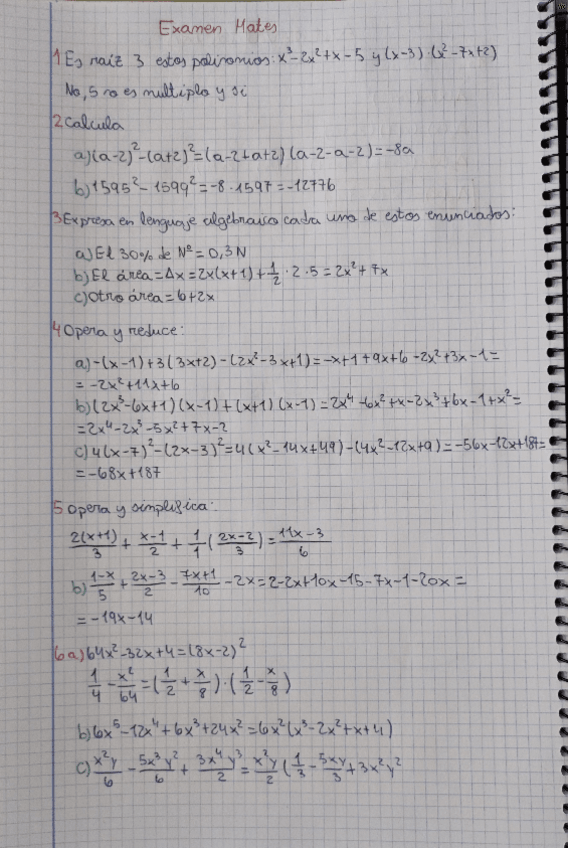 Examen Mates
1 Es raíz 3 estos polinomios: x³-2x²+x-5 y (x-3)·(x²-7x+2)
No, 5 no es multiplo y si
2 Calcula
a) (a-2)²-(a+2)²=(a-2+a+2)(a-2-a-2)=-8a
b) 1595²-1599²=-8·1597=-12776
3 Expresa en lenguaje algebraico cada uno de estos enunciados:
a) El 30% de Nº=0,3N
b) El área=Ax=2x(x+1)+1/2·2·5=2x²+7x
c) Otro área=6+2x
4 Opera y reduce:
a) -(x-1)+3(3x+2)-(2x²-3x+1)=-x+1+9x+6-2x²+3x-1=
=-2x²+11x+6
b) (2x³-6x+1)(x-1)+(x+1)(x-1)=2x⁴-6x²+x-2x³+6x-1+x²=
=2x⁴-2x³-5x²+7x-2
c) 4(x-7)²-(2x-3)²=4(x²-14x+49)-(4x²-12x+9)=-56x-12x+187=
=-68x+187
5 Opera y simplifica:
2(x+1)/3 + x-1/2 + 1/1 (2x-2/3) = 11x-3/6
b) 1-x/5 + 2x-3/2 - 7x+1/10 - 2x=2-2x+10x-15-7x-1-20x=
=-19x-14
6 a) 64x²-32x+4=(8x-2)²
1/4 - x²/64 = (1/2 + x/8)·(1/2 - x/8)
b) 6x⁵-12x⁴+6x³+24x²=6x²(x³-2x²+x+4)
c) x²y/6 - 5x³y²/6 + 3x⁴y³/2 = x²y/2 (1/3 - 5xy/3 + 3x²y²